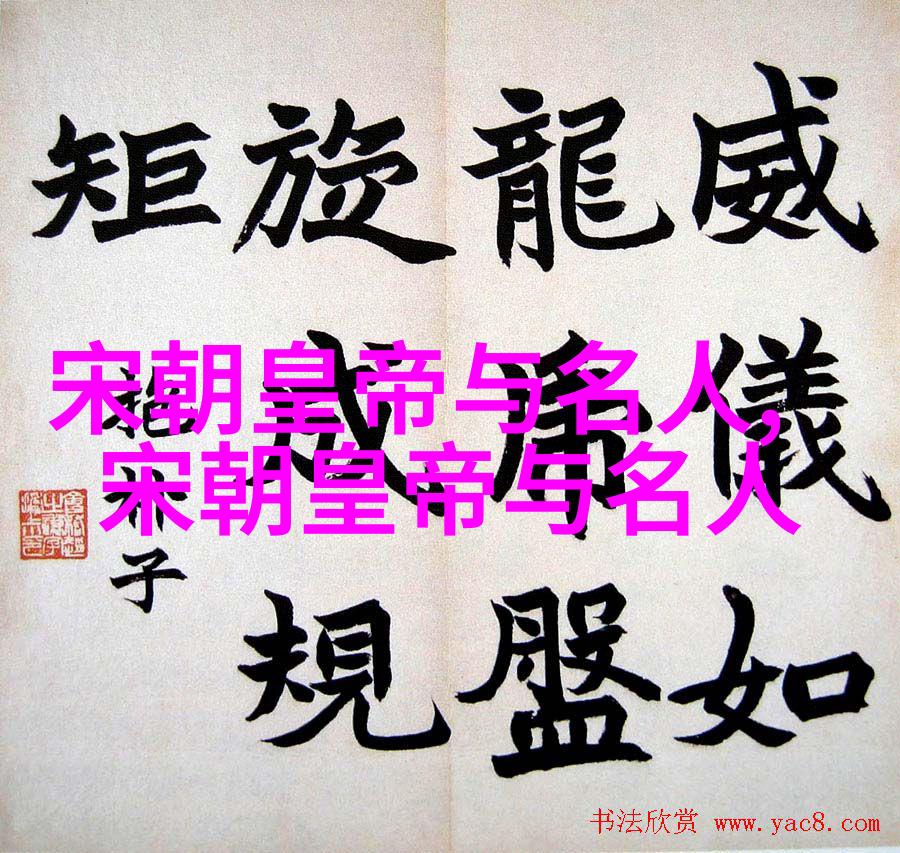 威儀如
龍虎盤
旋成規
矩
抱朴子
宋朝皇帝与名人,
宋朝皇帝与名人
书法欣赏 www.yac8.com